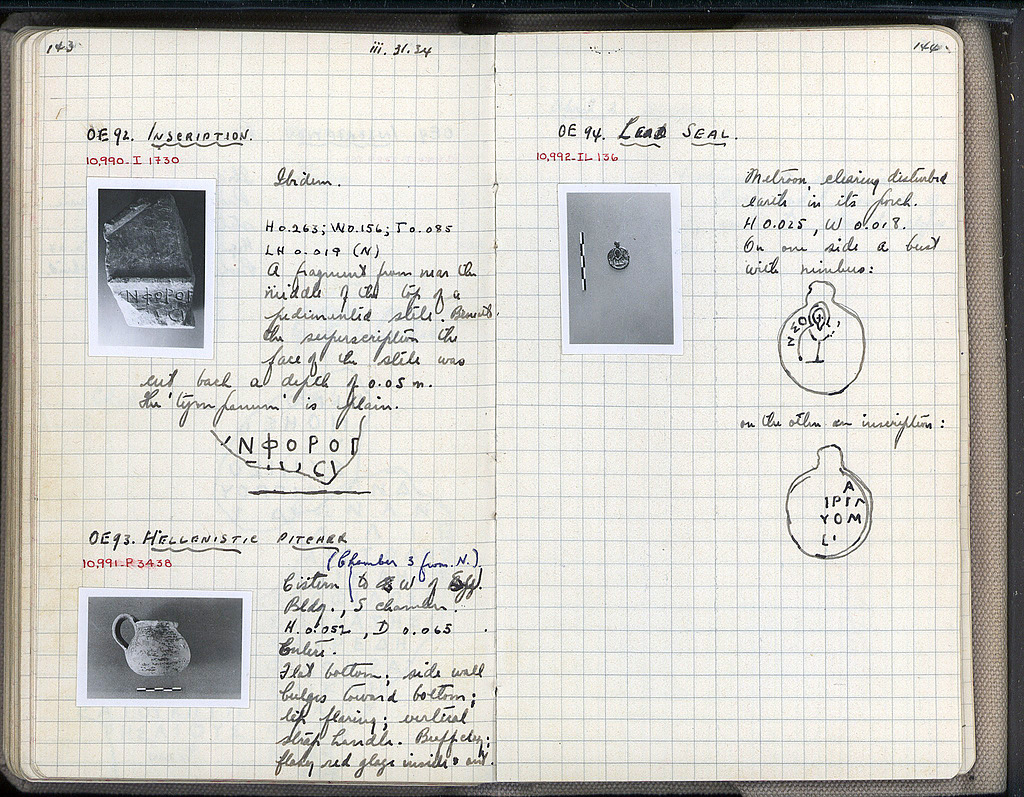 143
iii. 31. 34
OE 92. INSCRIPTION.
10,990-I 1730
Ibidem.
H 0.263; W 0.156; T 0.085
LH 0.019 (N)
A fragment from near the
middle of the top of a
pedimented stele. Beneath
the superscription the
face of the stele was
cut back a depth of 0.05 m.
The 'tympanum' is plain.
ΝΦΟΡΟΓ
OE 93. HELLENISTIC PITCHER
10,991-P 3438
(Chamber 3 from N.)
Cistern to W of
Bldg., S chamber.
H. 0.052, D 0.065
Entire.
Flat bottom; side wall
bulges toward bottom;
lip flaring; vertical
strap handle. Buff clay;
flaky red glaze inside & out.
144
OE 94. LEAD SEAL.
10,992-IL 136
Metroon, clearing disturbed
earth in its porch.
H 0.025, W 0.018.
On one side a bust
with nimbus:
on the other an inscription:
Α
ΥΟΜ